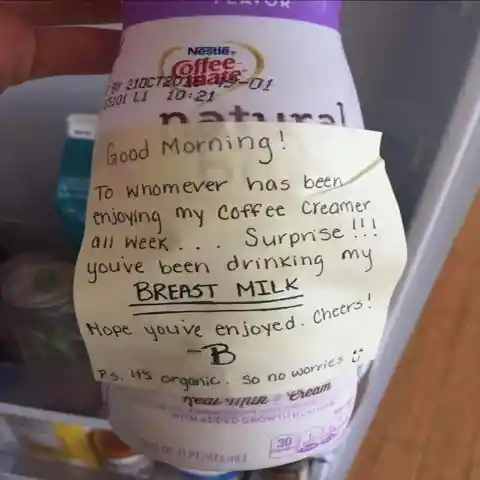 FLAVOR
Nestlé
Coffee
mate
BY 21OCT
10:21
natural
Good Morning!
To whomever has been
enjoying my Coffee Creamer
all week . . . Surprise!!!
you've been drinking my
BREAST MILK
Hope you've enjoyed. Cheers!
-B
P.s. It's organic. So no worries
Real Milk & Cream
30